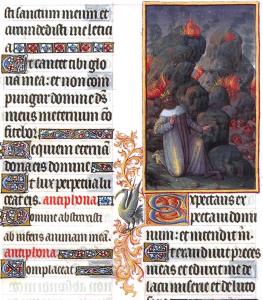 sti saccum meum et
circumdedisti me leticia
Ut cantet tibi glo
ria mea: et non com
pungar domine ds
meus in eternum con
fitebor.
Requiem eternā
dona eis domine
Et lux perpetua lu
ceat eis. antiphona.
Domine abstraxisti
ab inferis animam meā.
antiphona.
Complaceat
Expectans ex
pectavi domi
num: et intendit m
Et exaudivit preces
meas et eduxit me de
lacu miserie et de luto